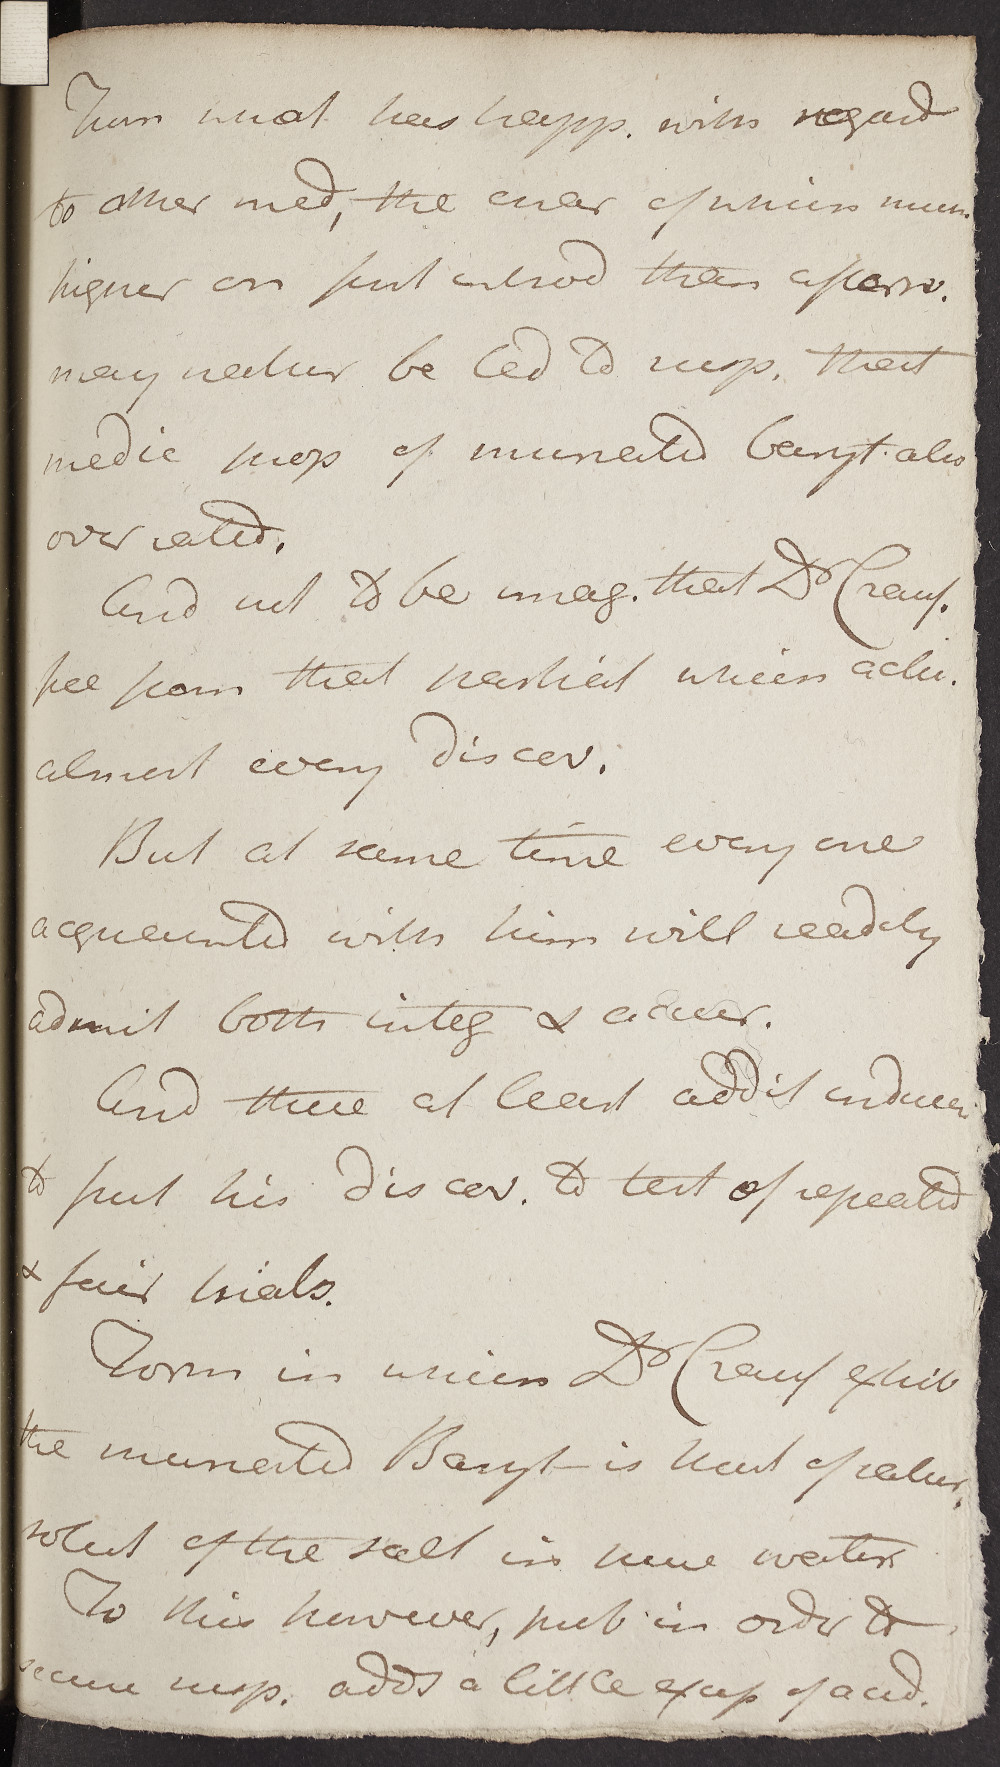 From what has happ. with regard
to other med, the char of which much
higher on first introd than afterw.
may natur be led to susp. that
medic prop of muriated baryt. also
over rated.
And not to be imag. that Dr Crauf.
free from that partial which
almost every discov.
But at same time every one
acquainted with him will readily
admit both integ & accur.
And there at least addit inducem
to put his discov. to test of repeated
& fair trials.
Form in which Dr Crauf exhib
the muriated Baryt is that of satur.
solut of the salt in pure water
To this however, prob. in order to
secure susp. adds a little of acid.